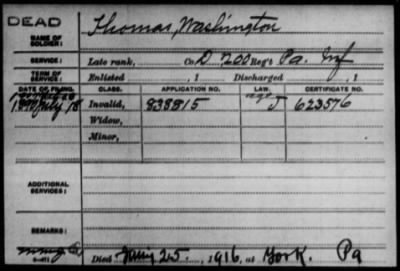 DEAD
NAME OF SOLDIER: Thomas, Washington
SERVICE: Late rank, Co. D 200 Reg't Pa. Inf
TERM OF SERVICE: Enlisted , 1 Discharged , 1
DATE OF FILING. CLASS. APPLICATION NO. LAW. CERTIFICATE NO.
age
July 18 Invalid, 838815 J 623576
Widow,
Minor,
ADDITIONAL SERVICES:
REMARKS:
Died 25 , 1916, at York. Pa